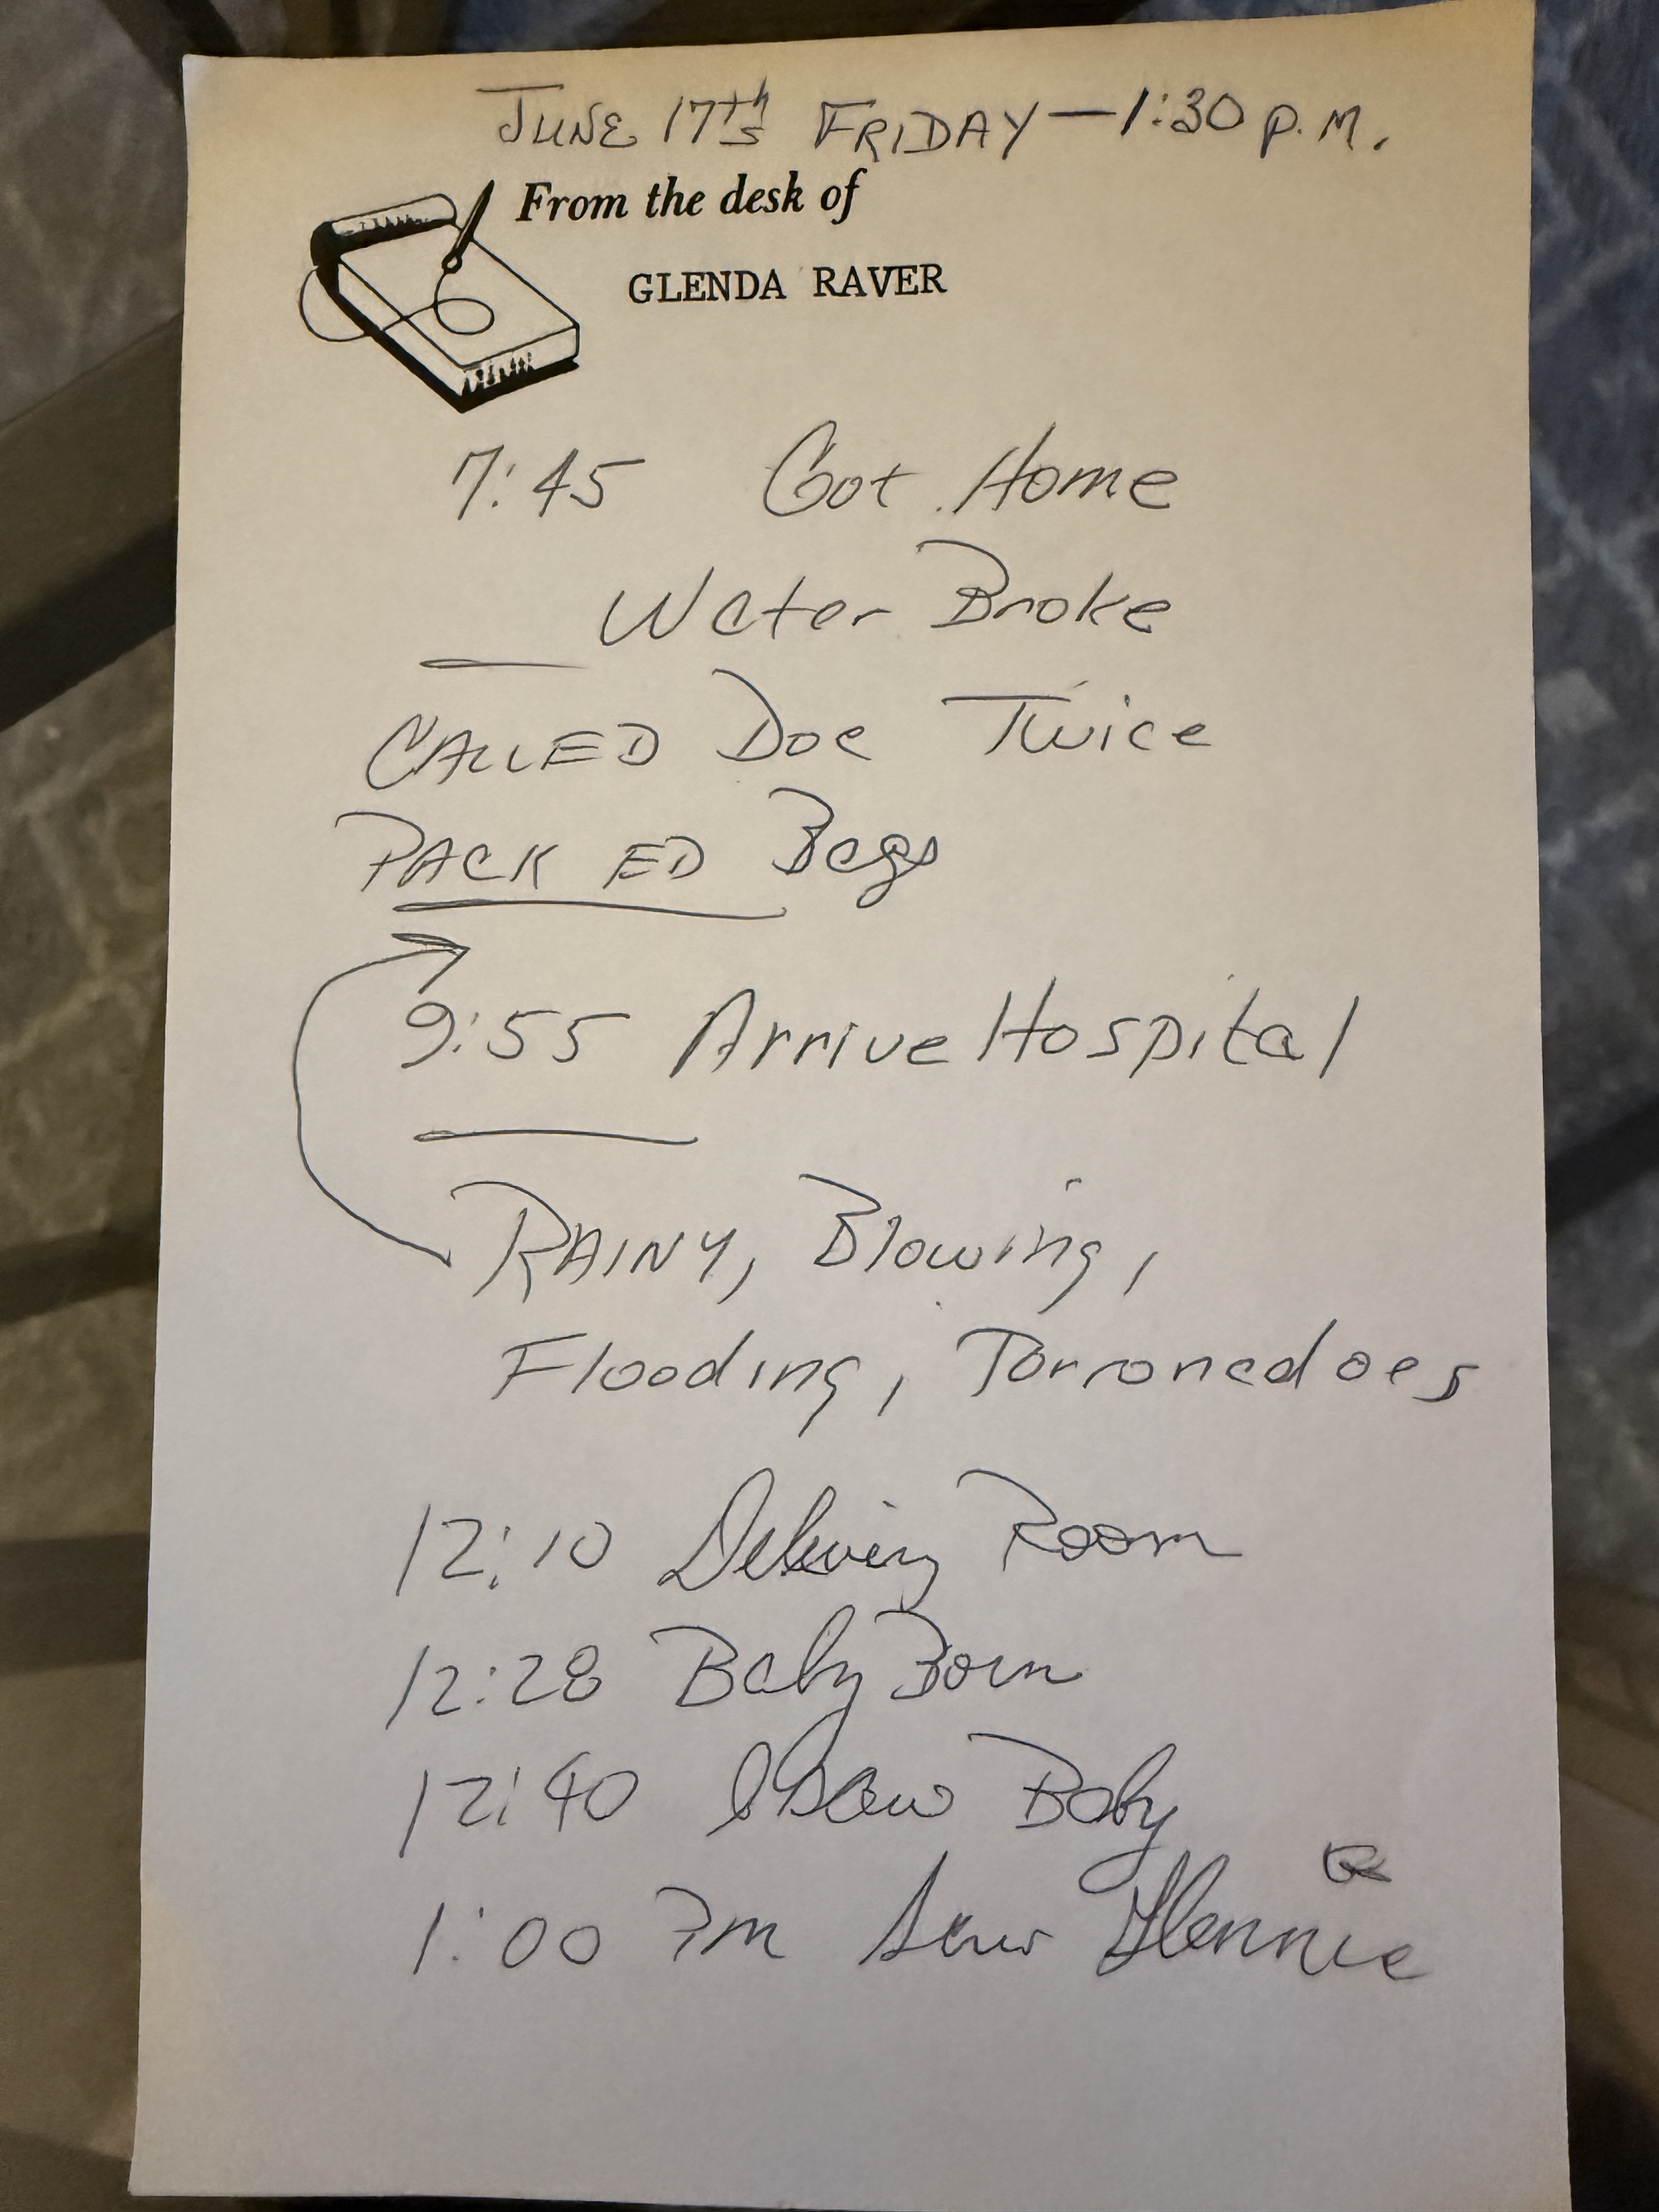 JUNE 17th FRIDAY — 1:30 P.M.
From the desk of
GLENDA RAVER
7:45 Got Home
Water Broke
CALLED Doc Twice
PACKED Bags
9:55 Arrive Hospital
RAINY, Blowing,
Flooding, Torronadoes
12:10 Delivery Room
12:28 Baby Born
12:40 I Saw Baby
1:00 Pm Saw Glennie